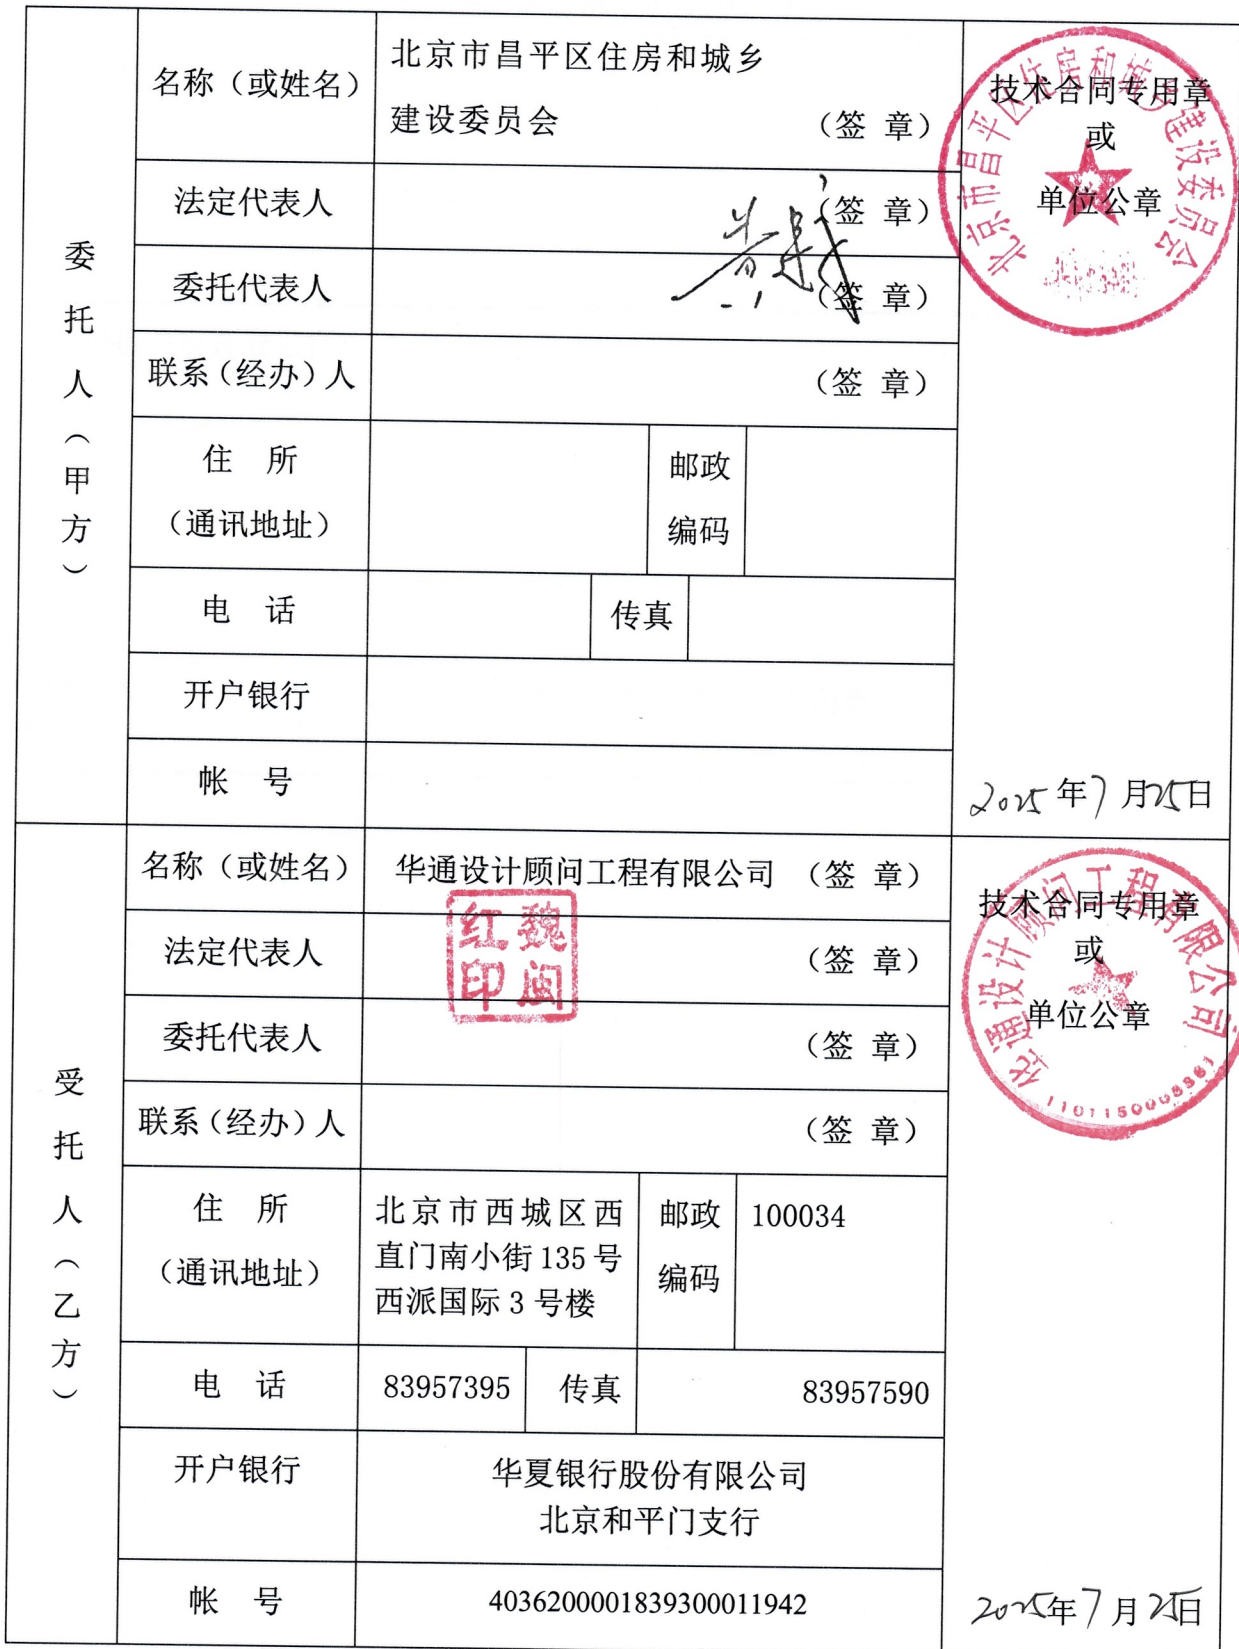 委托人（甲方）
名称（或姓名）
北京市昌平区住房和城乡
建设委员会 （签 章）
法定代表人 （签 章）
委托代表人 （签 章）
联系（经办）人 （签 章）
住 所
（通讯地址）
邮政
编码
电 话 传真
开户银行
帐 号
技术合同专用章
或
单位公章
北京市昌平区住房和城乡建设委员会
2025年7月25日
受托人（乙方）
名称（或姓名） 华通设计顾问工程有限公司 （签 章）
法定代表人 （签 章）
魏闽
红印
委托代表人 （签 章）
联系（经办）人 （签 章）
住 所
（通讯地址）
北京市西城区西
直门南小街 135 号
西派国际 3 号楼
邮政
编码
100034
电 话 83957395 传真 83957590
开户银行
华夏银行股份有限公司
北京和平门支行
帐 号 4036200001839300011942
技术合同专用章
或
单位公章
华通设计顾问工程有限公司
2025年7月25日